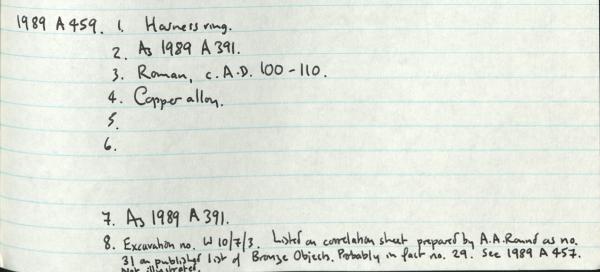 1989 A 459. 1. Harness ring.
2. As 1989 A 391.
3. Roman, c. A.D. 100-110.
4. Copper alloy.
5.
6.
7. As 1989 A 391.
8. Excavation no. W 10/7/3. Listed on correlation sheet prepared by A.A. Round as no.
31 on published list of Bronze Objects. Probably in fact no. 29. See 1989 A 457.
Not illustrated.